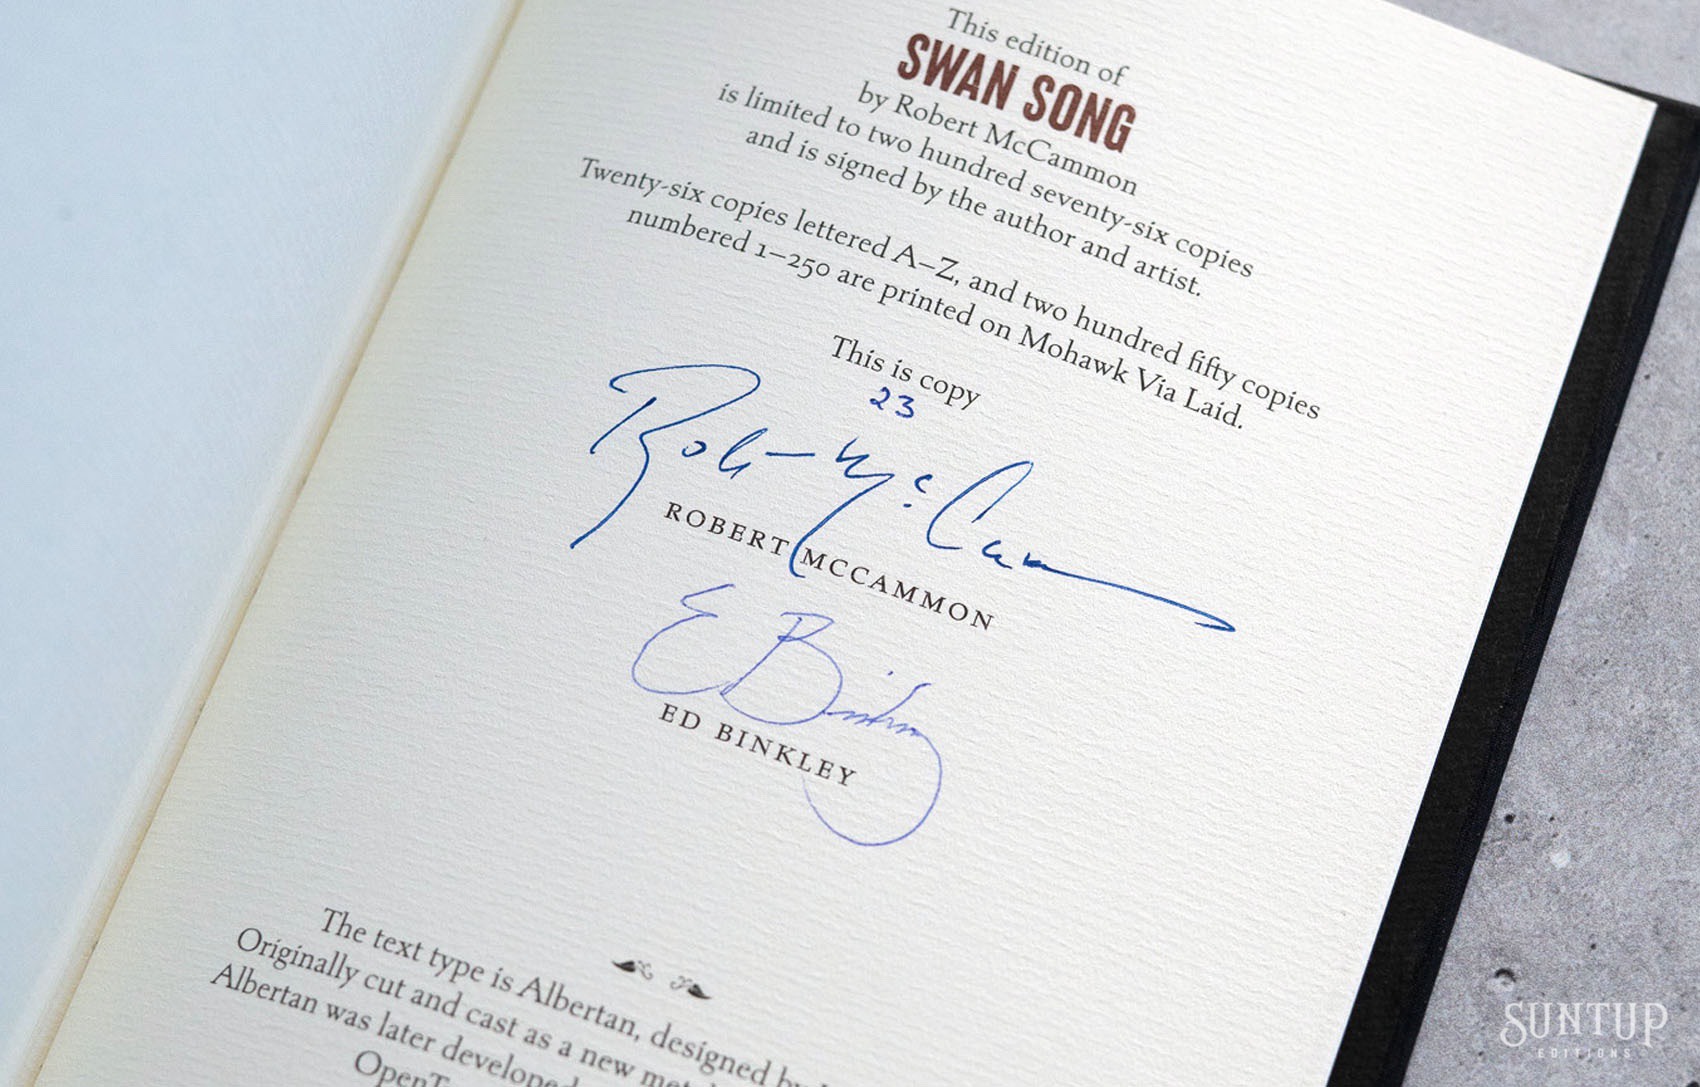 This edition of
SWAN SONG
by Robert McCammon
is limited to two hundred seventy-six copies
and is signed by the author and artist.
Twenty-six copies lettered A–Z, and two hundred fifty copies
numbered 1–250 are printed on Mohawk Via Laid.
This is copy
23
ROBERT MCCAMMON
E Binkley
ED BINKLEY
The text type is Albertan, designed by
Originally cut and cast as a new
Albertan was later developed
SUNTUP
EDITIONS